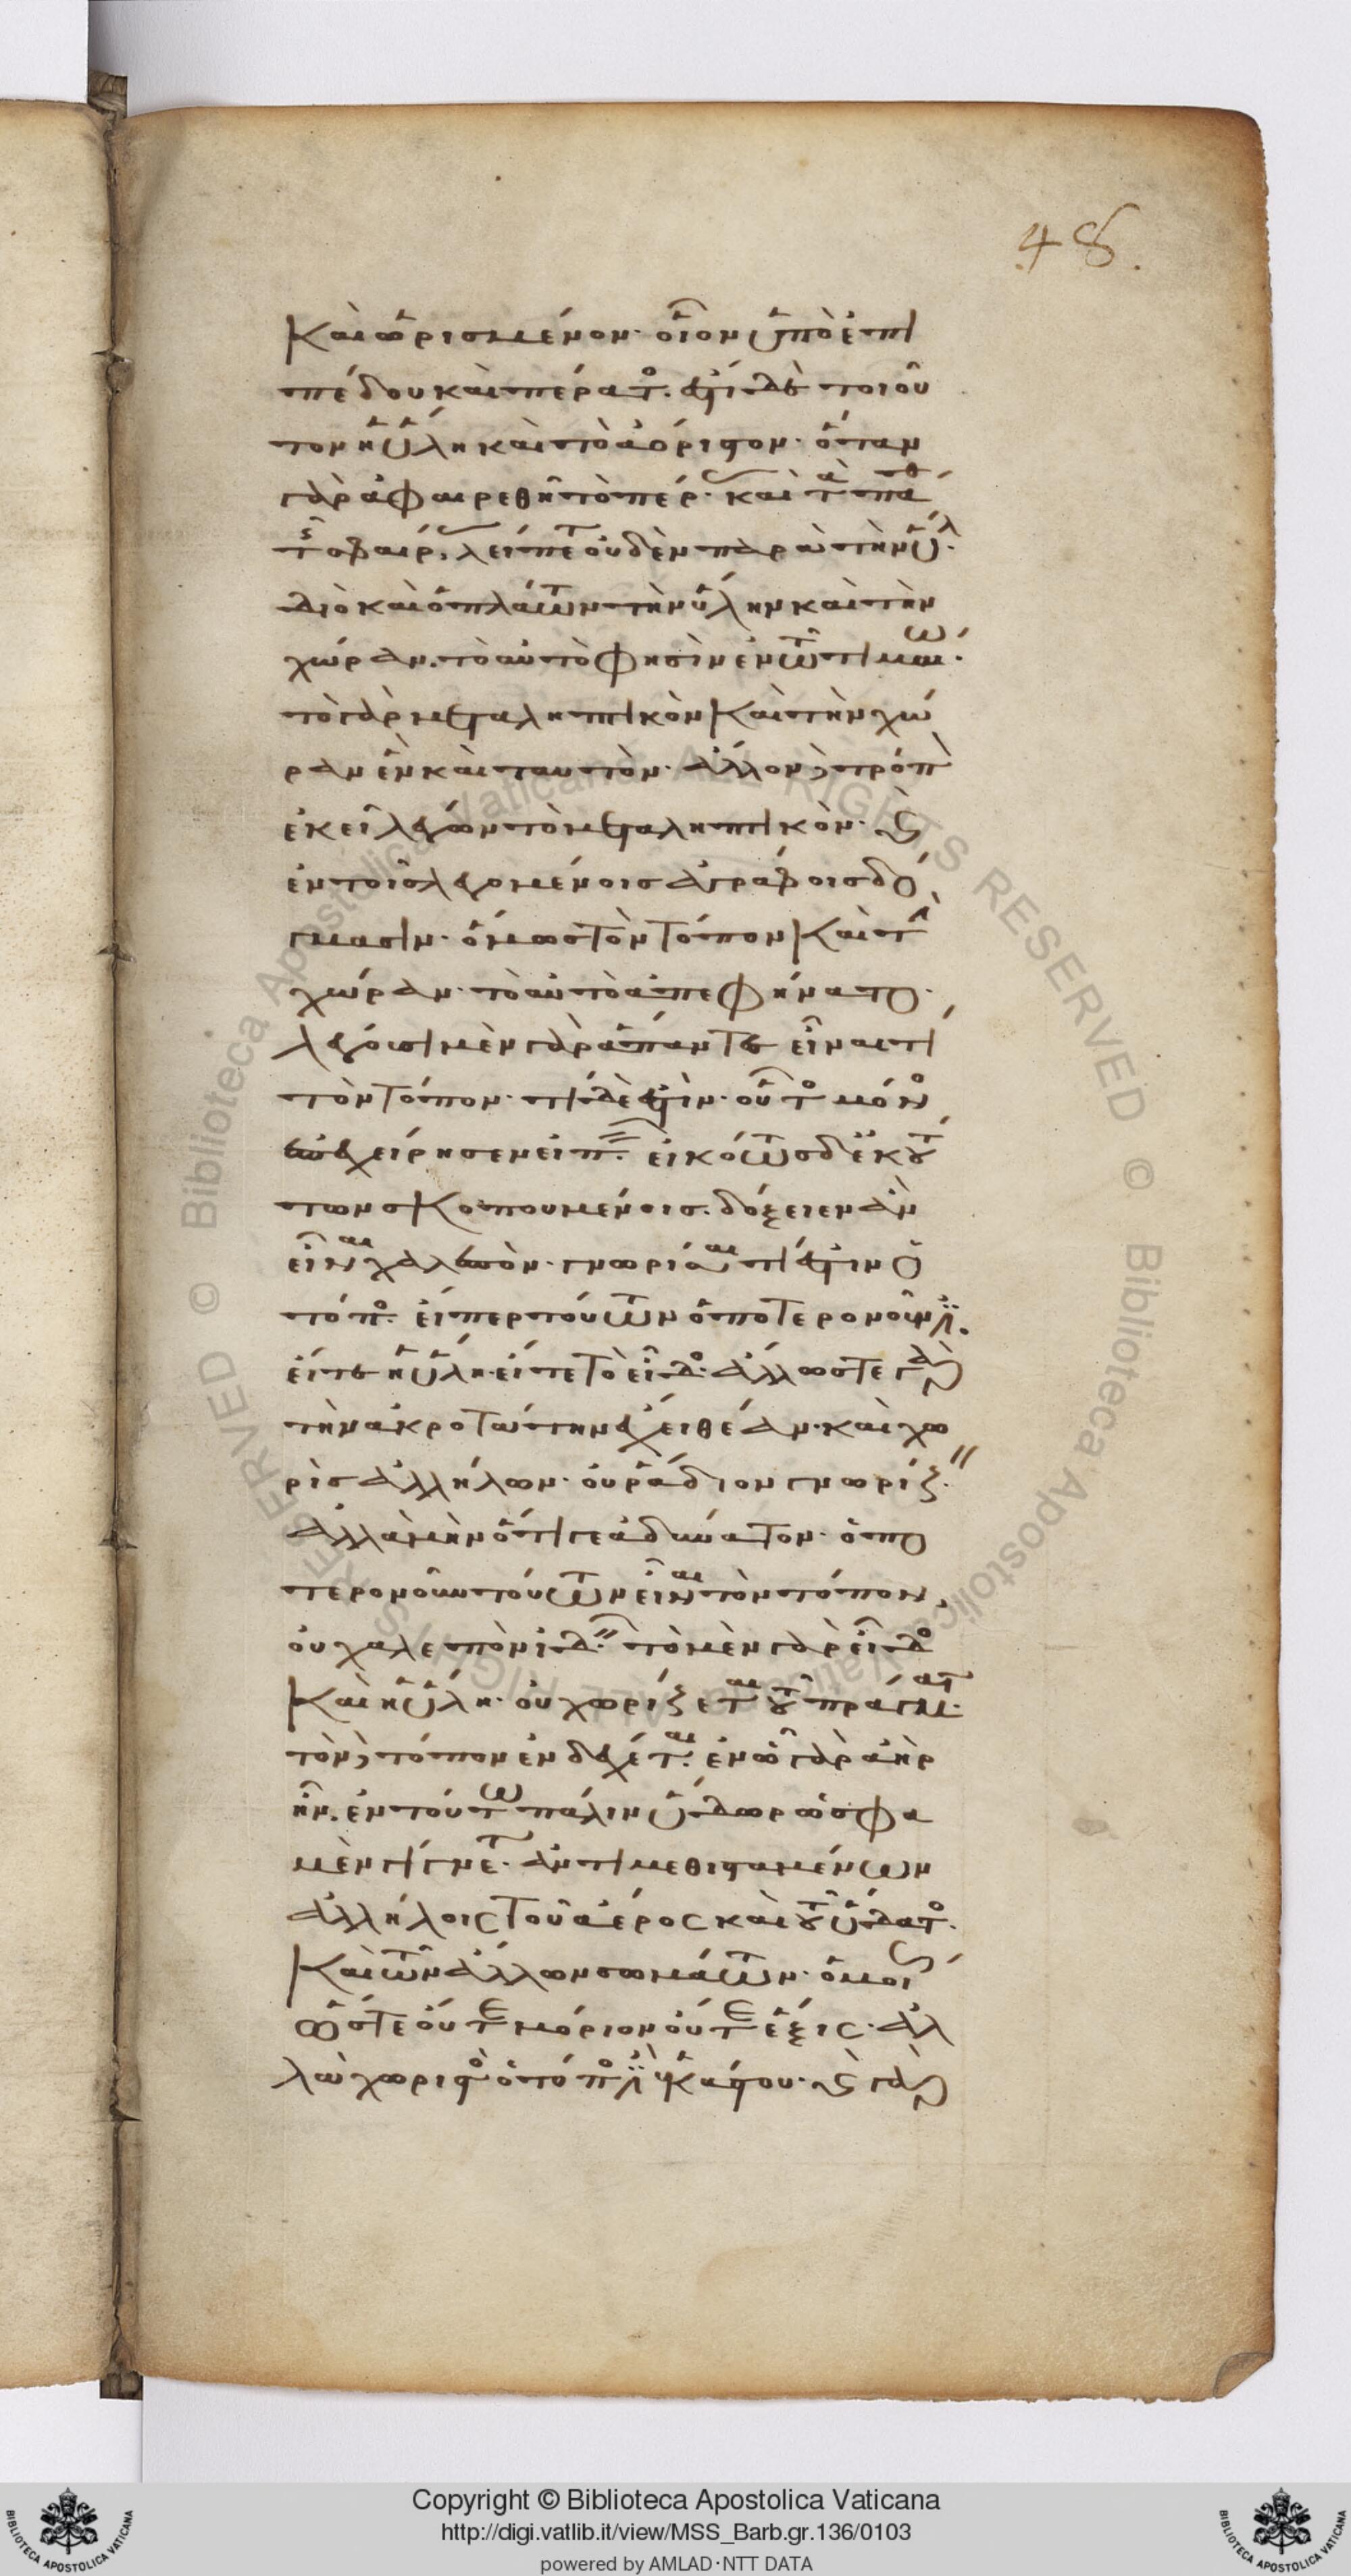 καὶ ὡρισμένον· οἷον ὑπὸ ἐπι
πέδου καὶ πέρατος· ἔστι δὲ τοιοῦ
τον ἡ ὕλη καὶ τὸ ἀόριστον· ὅταν
γὰρ ἀφαιρεθῆ τὸ πέρας· καὶ τὰ πάθη
τῆς σφαίρας, λείπεται οὐδὲν παρὰ τὴν ὕλην·
διὸ καὶ ὁ πλάτων τὴν ὕλην καὶ τὴν
χώραν. τὸ αὐτὸ φησὶν ἐν τῶ τιμαίω·
τὸ γὰρ μεταληπτικὸν καὶ τὴν χώ
ραν ἓν καὶ ταυτόν· ἄλλον δὲ τρόπον
ἐκεῖ λέγων τὸ μεταληπτικὸν· καὶ
ἐν τοῖς λεγομένοις ἀγράφοις δό
γμασιν· ὅμως τὸν τόπον καὶ τὴν
χώραν· τὸ αὐτὸ ἀπεφήνατο·
λέγουσι μὲν γὰρ ἅπαντες εἶναι τί
τὸν τόπον· τί δὲ ἐστὶν· οὗτος μόνος
ἐπεχείρησεν εἰπεῖν· εἰκότως δ' ἐκ τού
των σκοπουμένοις. δόξειεν ἂν
εἶναι χαλεπὸν· γνωρίσαι τί ἐστιν ὁ
τόπος· εἴπερ τούτων ὁποτερονοῦν ἐστιν·
εἴτε ἡ ὕλη· εἴτε τὸ εἶδος· ἄλλως τε γὰρ
τὴν ἀκροτάτην ἔχει θέαν· καὶ χω
ρὶς ἀλλήλων· οὐ ῥάδιον γνωρίζειν·
ἀλλὰ μὴν ὅτι γε ἀδύνατον· ὁπο
τερονοῦν τούτων εἶναι τὸν τόπον,
οὐ χαλεπὸν ἰδεῖν· τὸ μὲν γὰρ εἶδος
καὶ ἡ ὕλη· οὐ χωρίζεται τοῦ πράγματος·
τὸν δὲ τόπον ἐνδέχεται· ἐν ὧ γὰρ ἀὴρ
ἦν. ἐν τούτω πάλιν ὕδωρ ὥς φα
μὲν γίγνεται· ἀντιμεθισταμένων
ἀλλήλοις τοῦ ἀέρος καὶ τοῦ ὕδατος·
καὶ τῶν ἄλλων σωμάτων· ὁμοίως
ὥστε οὔτε μόριον οὔτε ἕξις· ἀλ
λὰ χωριστὸς ὁ τόπος ἐστὶν ἑκάστου· καὶ γὰρ
48.
Copyright © Biblioteca Apostolica Vaticana
http://digi.vatlib.it/view/MSS_Barb.gr.136/0103
powered by AMLAD·NTT DATA